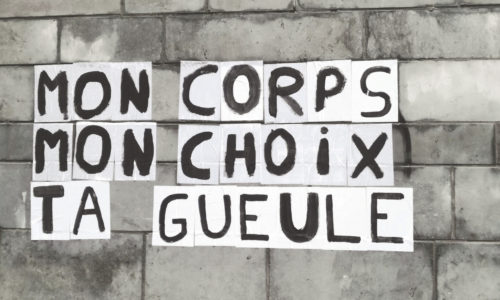 MON CORPS
MON CHOiX
TA GUEULE